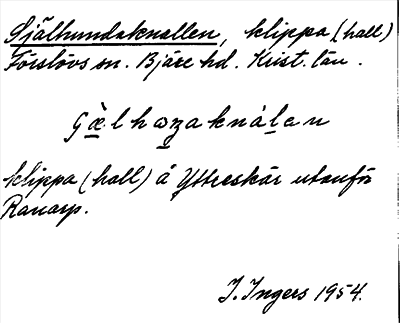 Själhundaknallen, klippa (hall)
Förslövs sn. Bjäre hd. Krist. län.
klippa (hall) å Ytterskär utanför
Ranarp.
J. Ingers 1954.